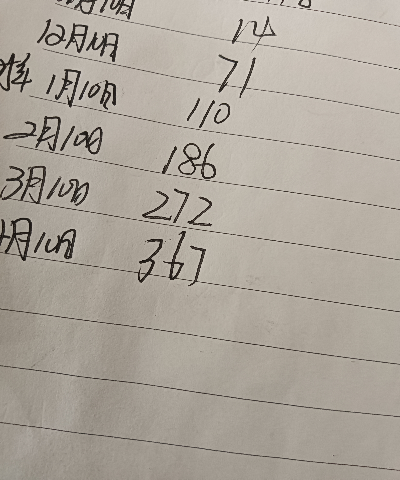 月10日
12月10日 71
1月10日 110
2月10日 186
3月10日 272
4月10日 367